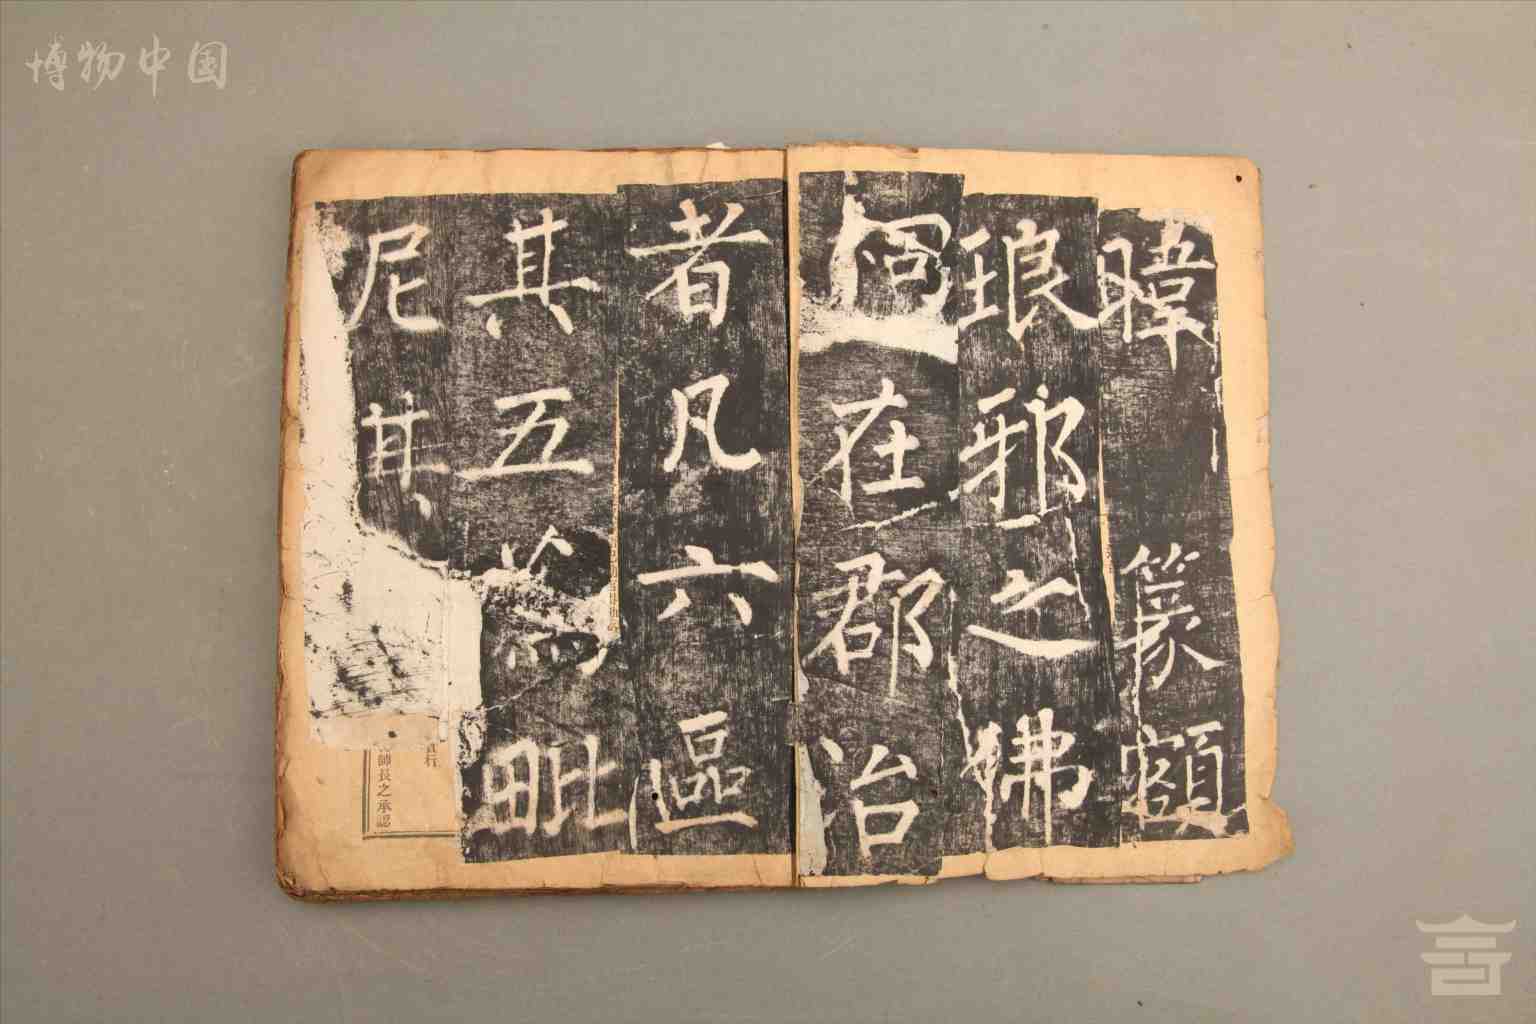 博物中国
暐篆額
琅邪之狒
在郡治
者凡六區
其五為毗
尼其
師長之承認